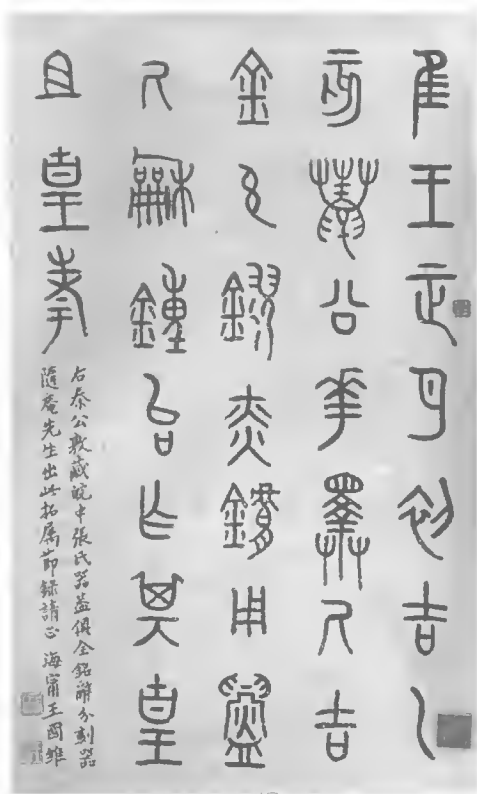 隹王正月初吉乙
亥邾公華擇氒吉
金玄鏐赤用鑄
氒龢鐘台乍其皇
且皇考
右秦公敦藏皖中張氏器蓋俱全銘辭分刻器
隨庵先生出此拓屬節錄請正 海甯王國維